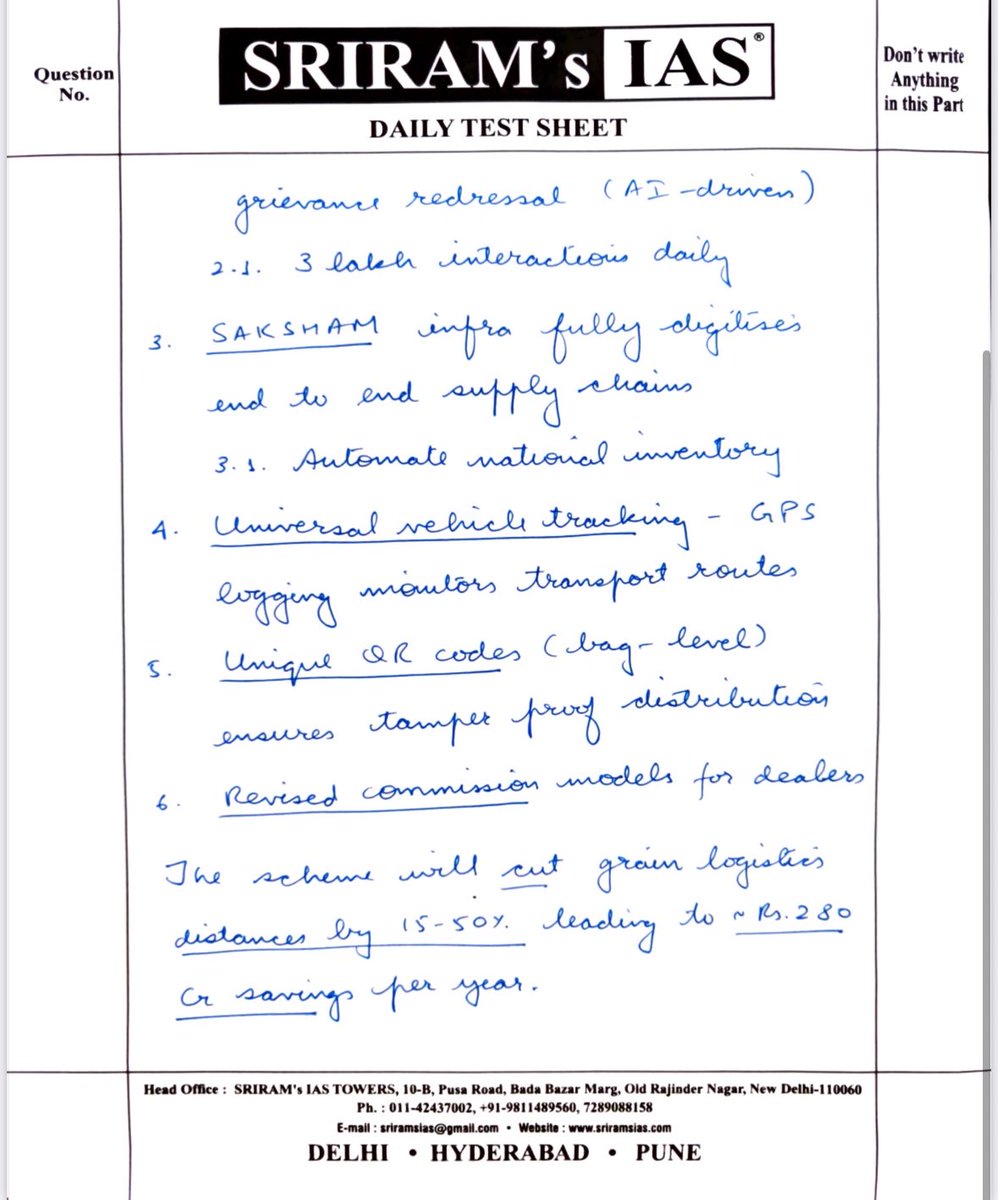 Question
No.
SRIRAM's IAS®
DAILY TEST SHEET
Don't write
Anything
in this Part
grievance redressal (AI-driven)
2.1. 3 lakh interactions daily
3. SAKSHAM infra fully digitises
end to end supply chains
3.1. Automate national inventory
4. Universal vehicle tracking - GPS
logging monitors transport routes
5. Unique QR codes (bag-level)
ensures tamper proof distribution
6. Revised commission models for dealers
The scheme will cut grain logistics
distances by 15-50% leading to ~ Rs. 280
Cr savings per year.
Head Office : SRIRAM's IAS TOWERS, 10-B, Pusa Road, Bada Bazar Marg, Old Rajinder Nagar, New Delhi-110060
Ph. : 011-42437002, +91-9811489560, 7289088158
E-mail : sriramsias@gmail.com • Website : www.sriramsias.com
DELHI • HYDERABAD • PUNE